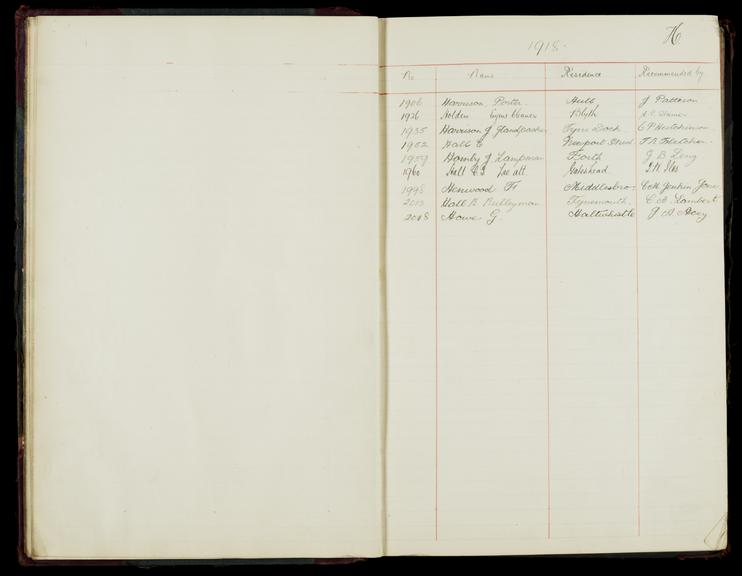 H
1918.
No Name Residence Recommended by
1906 Harrison, Porter. Hull J Pattison
1926 Holden Engine Cleaner Blyth
1935 Harrison J Tyne Dock C P Hutchinson
1952 Hall E Newport Shed T. B. Fletcher.
1959 Hornby J Lampman Forth J B Leng
1960 Hall Gateshead J.W. Iles
1998 Henwood Fr Middlesbro C.H. Jenkin Jones
2013 Hall R. Pulleyman Tynemouth. C. A. Lambert
2018 Howe G. Haltwhistle J A